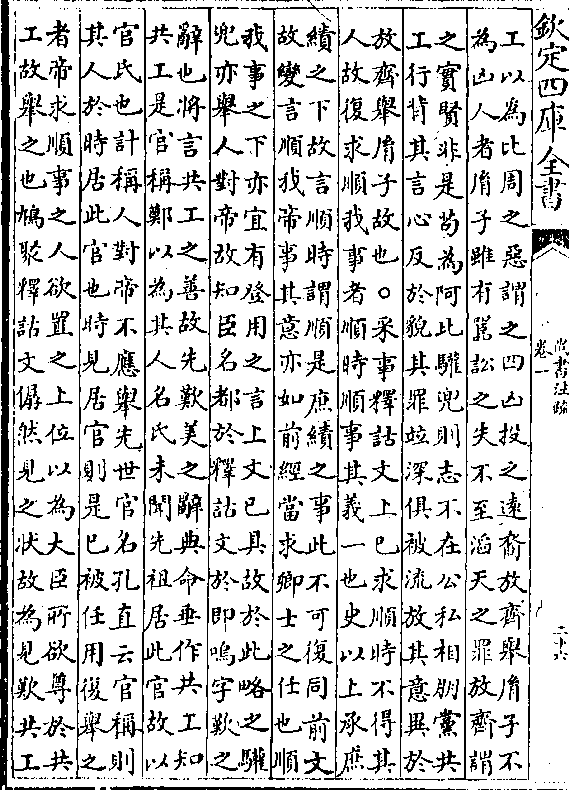 欽定四庫全書
尚書注疏
卷一
二十六
工以為比周之惡謂之四凶投之遠裔放齊舉胤子不
為凶人者胤子雖有嚚訟之失不至滔天之罪放齊謂
之實賢非是苟為阿比驩兜則志不在公私相朋黨共
工行背其言心反於貌其罪竝深俱被流放其意異於
放齊舉胤子故也○采事釋詁文上已求順時不得其
人故復求順我事者順時順事其義一也史以上承庶
績之下故言順時謂順是庶績之事此不可復同前文
故變言順我帝事其意亦如前經當求卿士之任也順
我事之下亦宜有登用之言上文已具故於此略之驩
兜亦舉人對帝故知臣名都於釋詁文於即嗚字歎之
辭也將言共工之善故先歎美之辭典命垂作共工知
共工是官稱鄭以為其人名氏未聞先祖居此官故以
官氏也計稱人對帝不應舉先世官名孔直云官稱則
其人於時居此官也時見居官則是已被任用復舉之
者帝求順事之人欲置之上位以為大臣所欲尊於共
工故舉之也鳩聚釋詁文僝然見之狀故為見歎共工